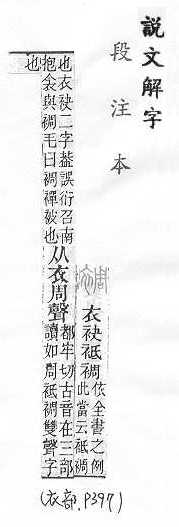 說文解字
段注本
衣袂祗裯依全書之例此當云祗裯
也衣袂二字葢誤衍召南抱衾與裯毛曰裯襌被也从衣周聲都牢切古音在三部讀如周祗裯雙聲字
也
(衣部.P397)